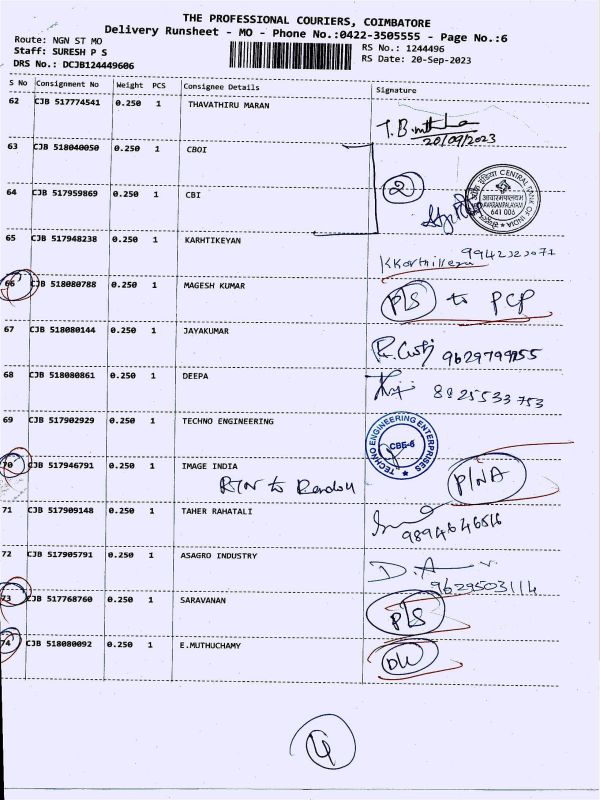 THE PROFESSIONAL COURIERS, COIMBATORE
Delivery Runsheet - MO - Phone No.:0422-3505555 - Page No.:6
Route: NGN ST MO
Staff: SURESH P S
DRS No.: DCJB124449606
RS No.: 1244496
RS Date: 20-Sep-2023
S No Consignment No Weight PCS Consignee Details Signature
62 CJB 517774541 0.250 1 THAVATHIRU MARAN
20/09/2023
63 CJB 518040050 0.250 1 CBOI
2
CENTRAL BANK OF INDIA
641 006
64 CJB 517959869 0.250 1 CBI
65 CJB 517948238 0.250 1 KARHTIKEYAN
66 CJB 518080788 0.250 1 MAGESH KUMAR P/S to PCP
67 CJB 518080144 0.250 1 JAYAKUMAR
68 CJB 518080861 0.250 1 DEEPA 8925533753
69 CJB 517902929 0.250 1 TECHNO ENGINEERING
TECHNO ENGINEERING ENTERPRISES
CBE-6
70 CJB 517946791 0.250 1 IMAGE INDIA P/NA
71 CJB 517909148 0.250 1 TAHER RAHATALI
9894646516
72 CJB 517905791 0.250 1 ASAGRO INDUSTRY D.A
9629503114
73 CJB 517768760 0.250 1 SARAVANAN P/S
74 CJB 518080092 0.250 1 E.MUTHUCHAMY
4